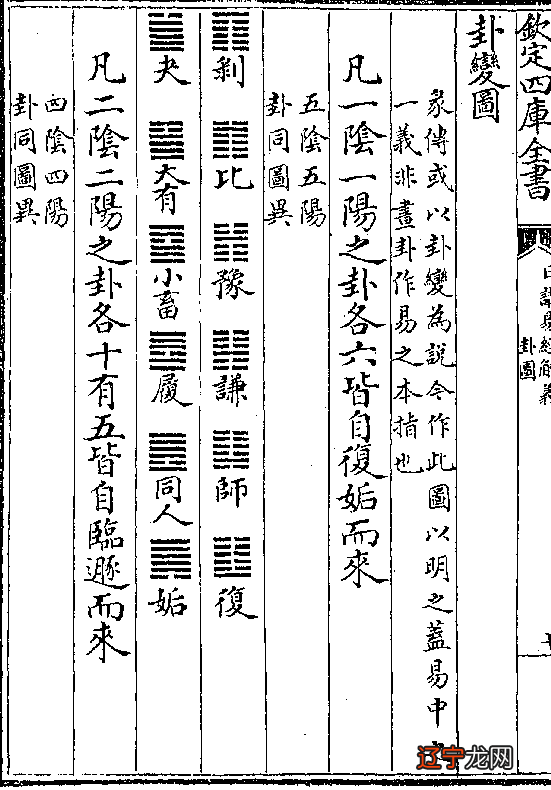 欽定四庫全書
卦圖
卦變圖
彖傳或以卦變為說今作此圖以明之蓋易中
一義非畫卦作易之本指也
凡一陰一陽之卦各六皆自復姤而來
五陰五陽
卦同圖異
剥 比 豫 謙 師 復
夬 大有 小畜 履 同人 姤
凡二陰二陽之卦各十有五皆自臨遯而來
四陰四陽
卦同圖異
辽宁龙网